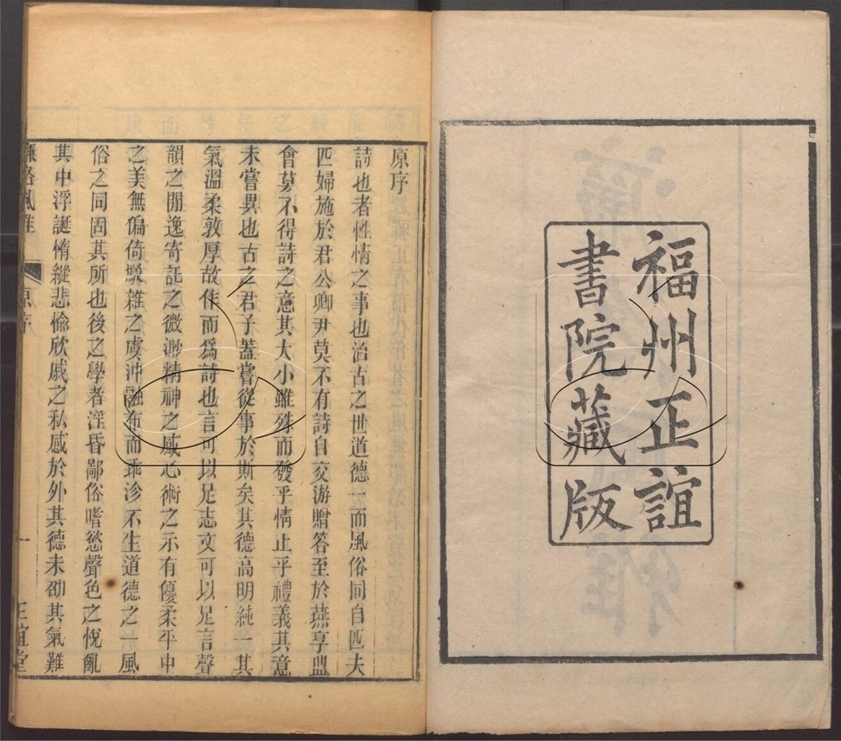 福州正誼
書院藏版
原序
詩也者性情之事也治古之世道德一而風俗同自匹夫
匹婦施於君公卿尹莫不有詩自交游贈答至於燕享盟
會莫不得詩之意其大小雖殊而發乎情止乎禮義其意
未嘗異也古之君子蓋嘗從事於斯矣其德高明純一其
氣溫柔敦厚故作而爲詩也言可以足志文可以足言聲
韻之閒逸寄託之微渺精神之感心術之示有優柔平中
之美無偏倚駁雜之虞沖融布而乖沴不生道德之一風
俗之同固其所也後之學者淫昏鄙俗嗜慾聲色之悅亂
其中浮誕惰縱悲愉欣戚之私感於外其德未卲其氣難
濂洛風雅
原序
一
正誼堂